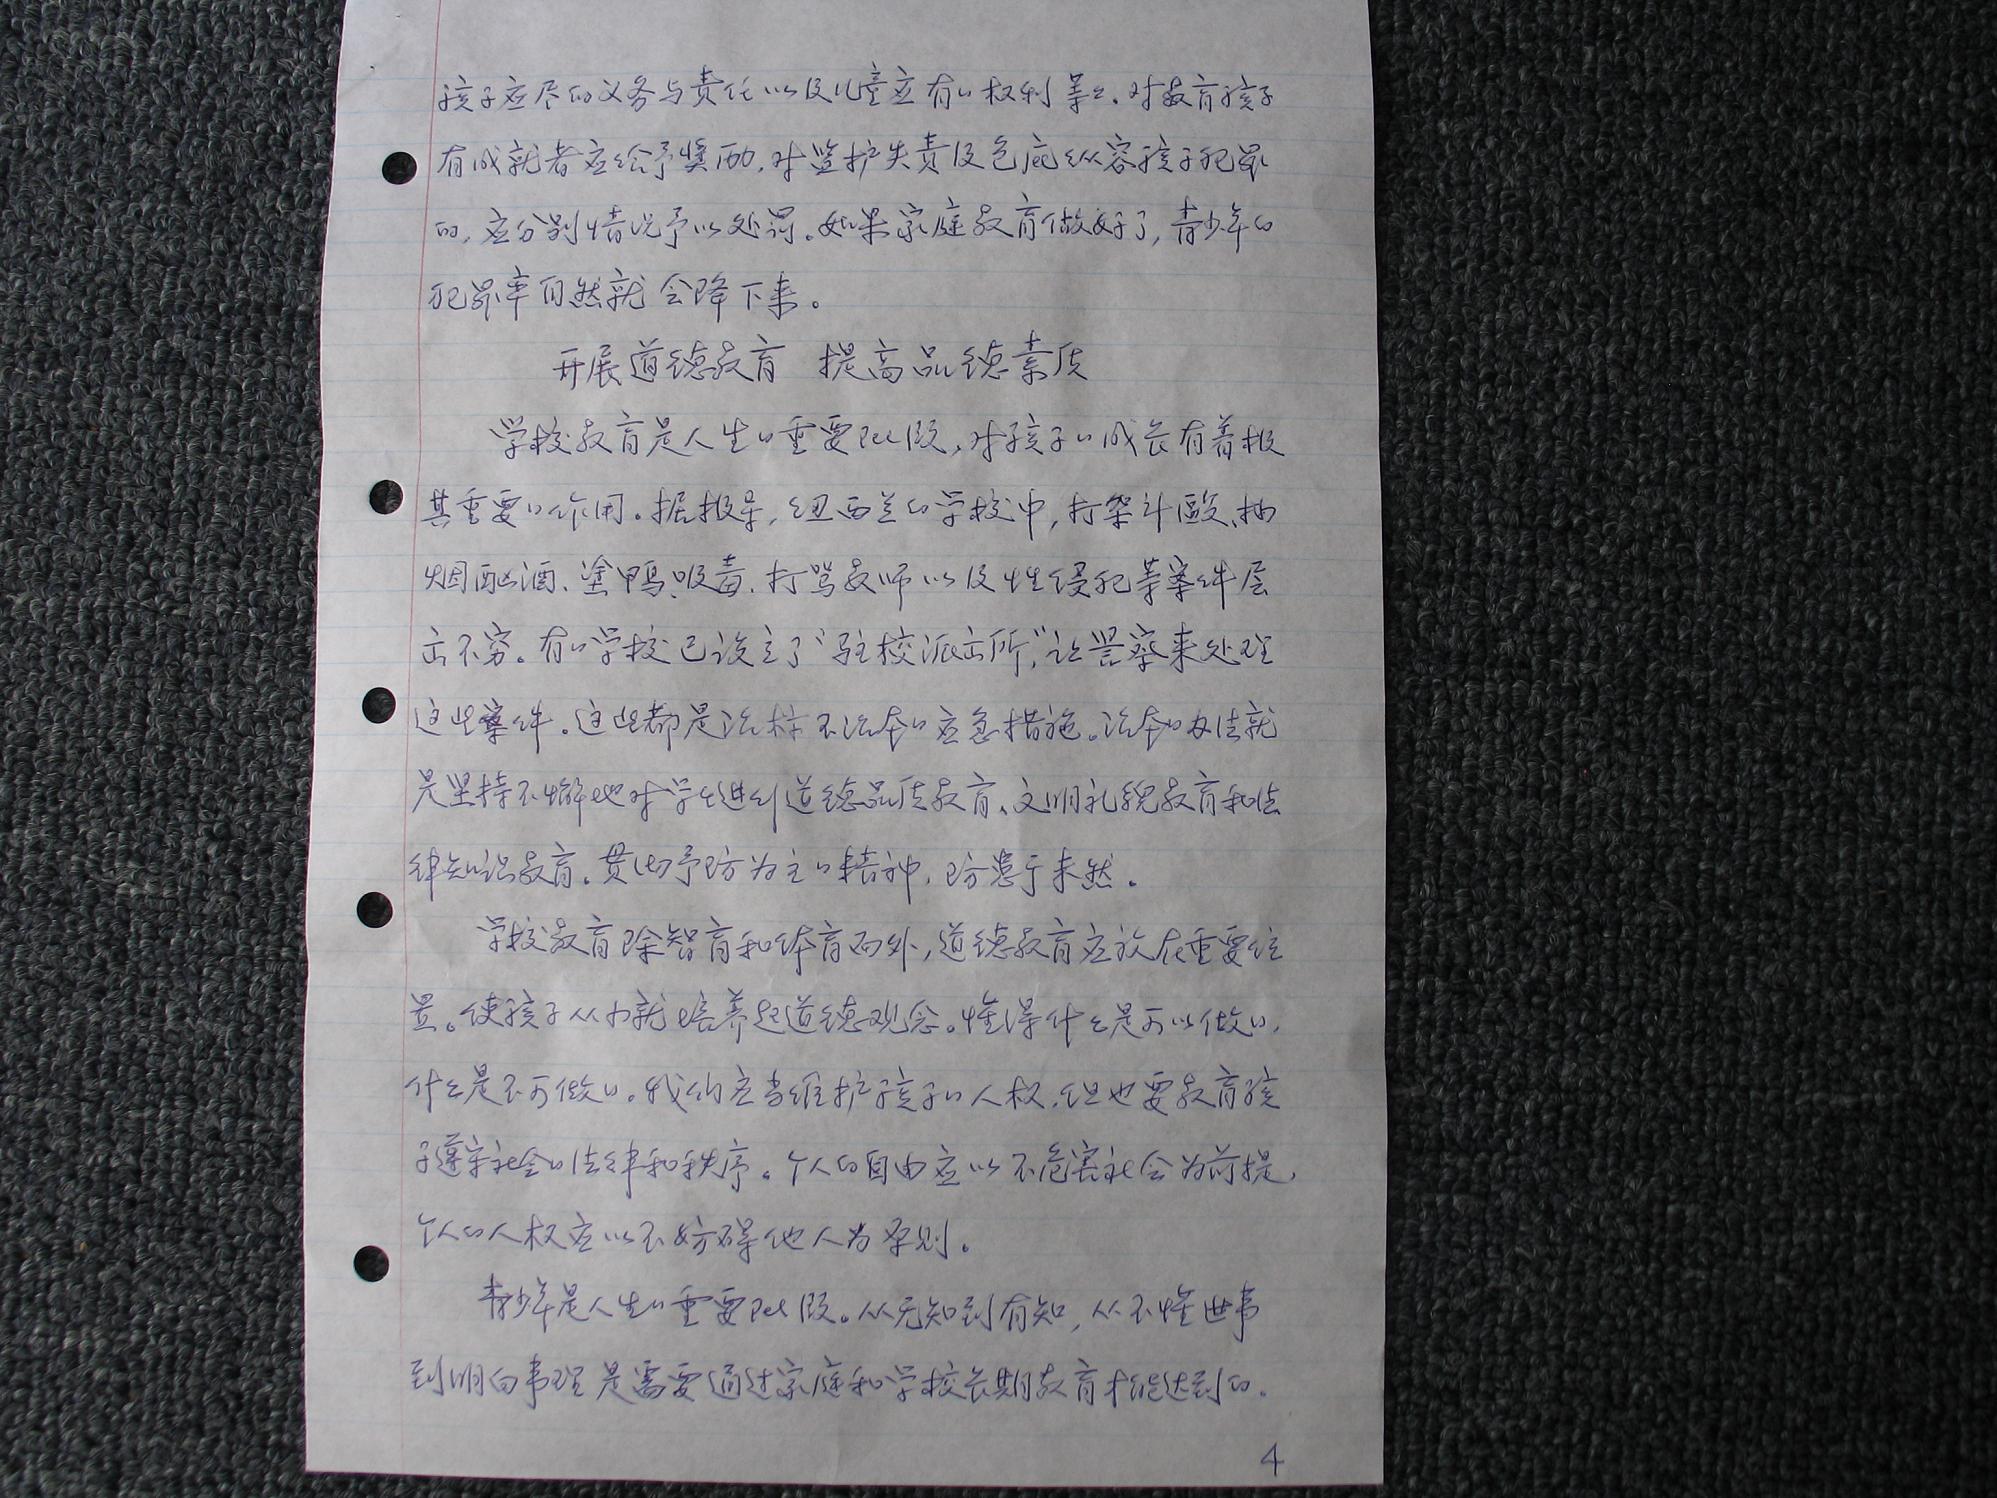 孩子应尽的义务与责任以及儿童应有的权利等等。对教育孩子
有成就者应给予奖励，对监护失责及包庇纵容孩子犯罪
的，应分别情况予以处罚。如果家庭教育做好了，青少年的
犯罪率自然就会降下来。
开展道德教育 提高品德素质
学校教育是人生的重要阶段，对孩子的成长有着极
其重要的作用。据报导，纽西兰的学校中，打架斗殴、抽
烟酗酒、塗鸭、吸毒、打骂教师以及性侵犯等案件层
出不穷。有的学校已设立了“驻校派出所，”让警察来处理
这些案件。这些都是治标不治本的应急措施。治本的办法就
是坚持不懈地对学生进行道德品质教育、文明礼貌教育和法
律知识教育。贯彻予防为主的精神，防患于未然。
学校教育除智育和体育而外，道德教育应放在重要位
置。使孩子从小就培养起道德观念。懂得什么是可以做的，
什么是不可做的。我们应当维护孩子的人权，但也要教育孩
子遵守社会的法律和秩序。个人的自由应以不危害社会为前提，
个人的人权应以不妨碍他人为原则。
青少年是人生的重要阶段。从无知到有知，从不懂世事
到明白事理是需要通过家庭和学校长期教育才能达到的。
4